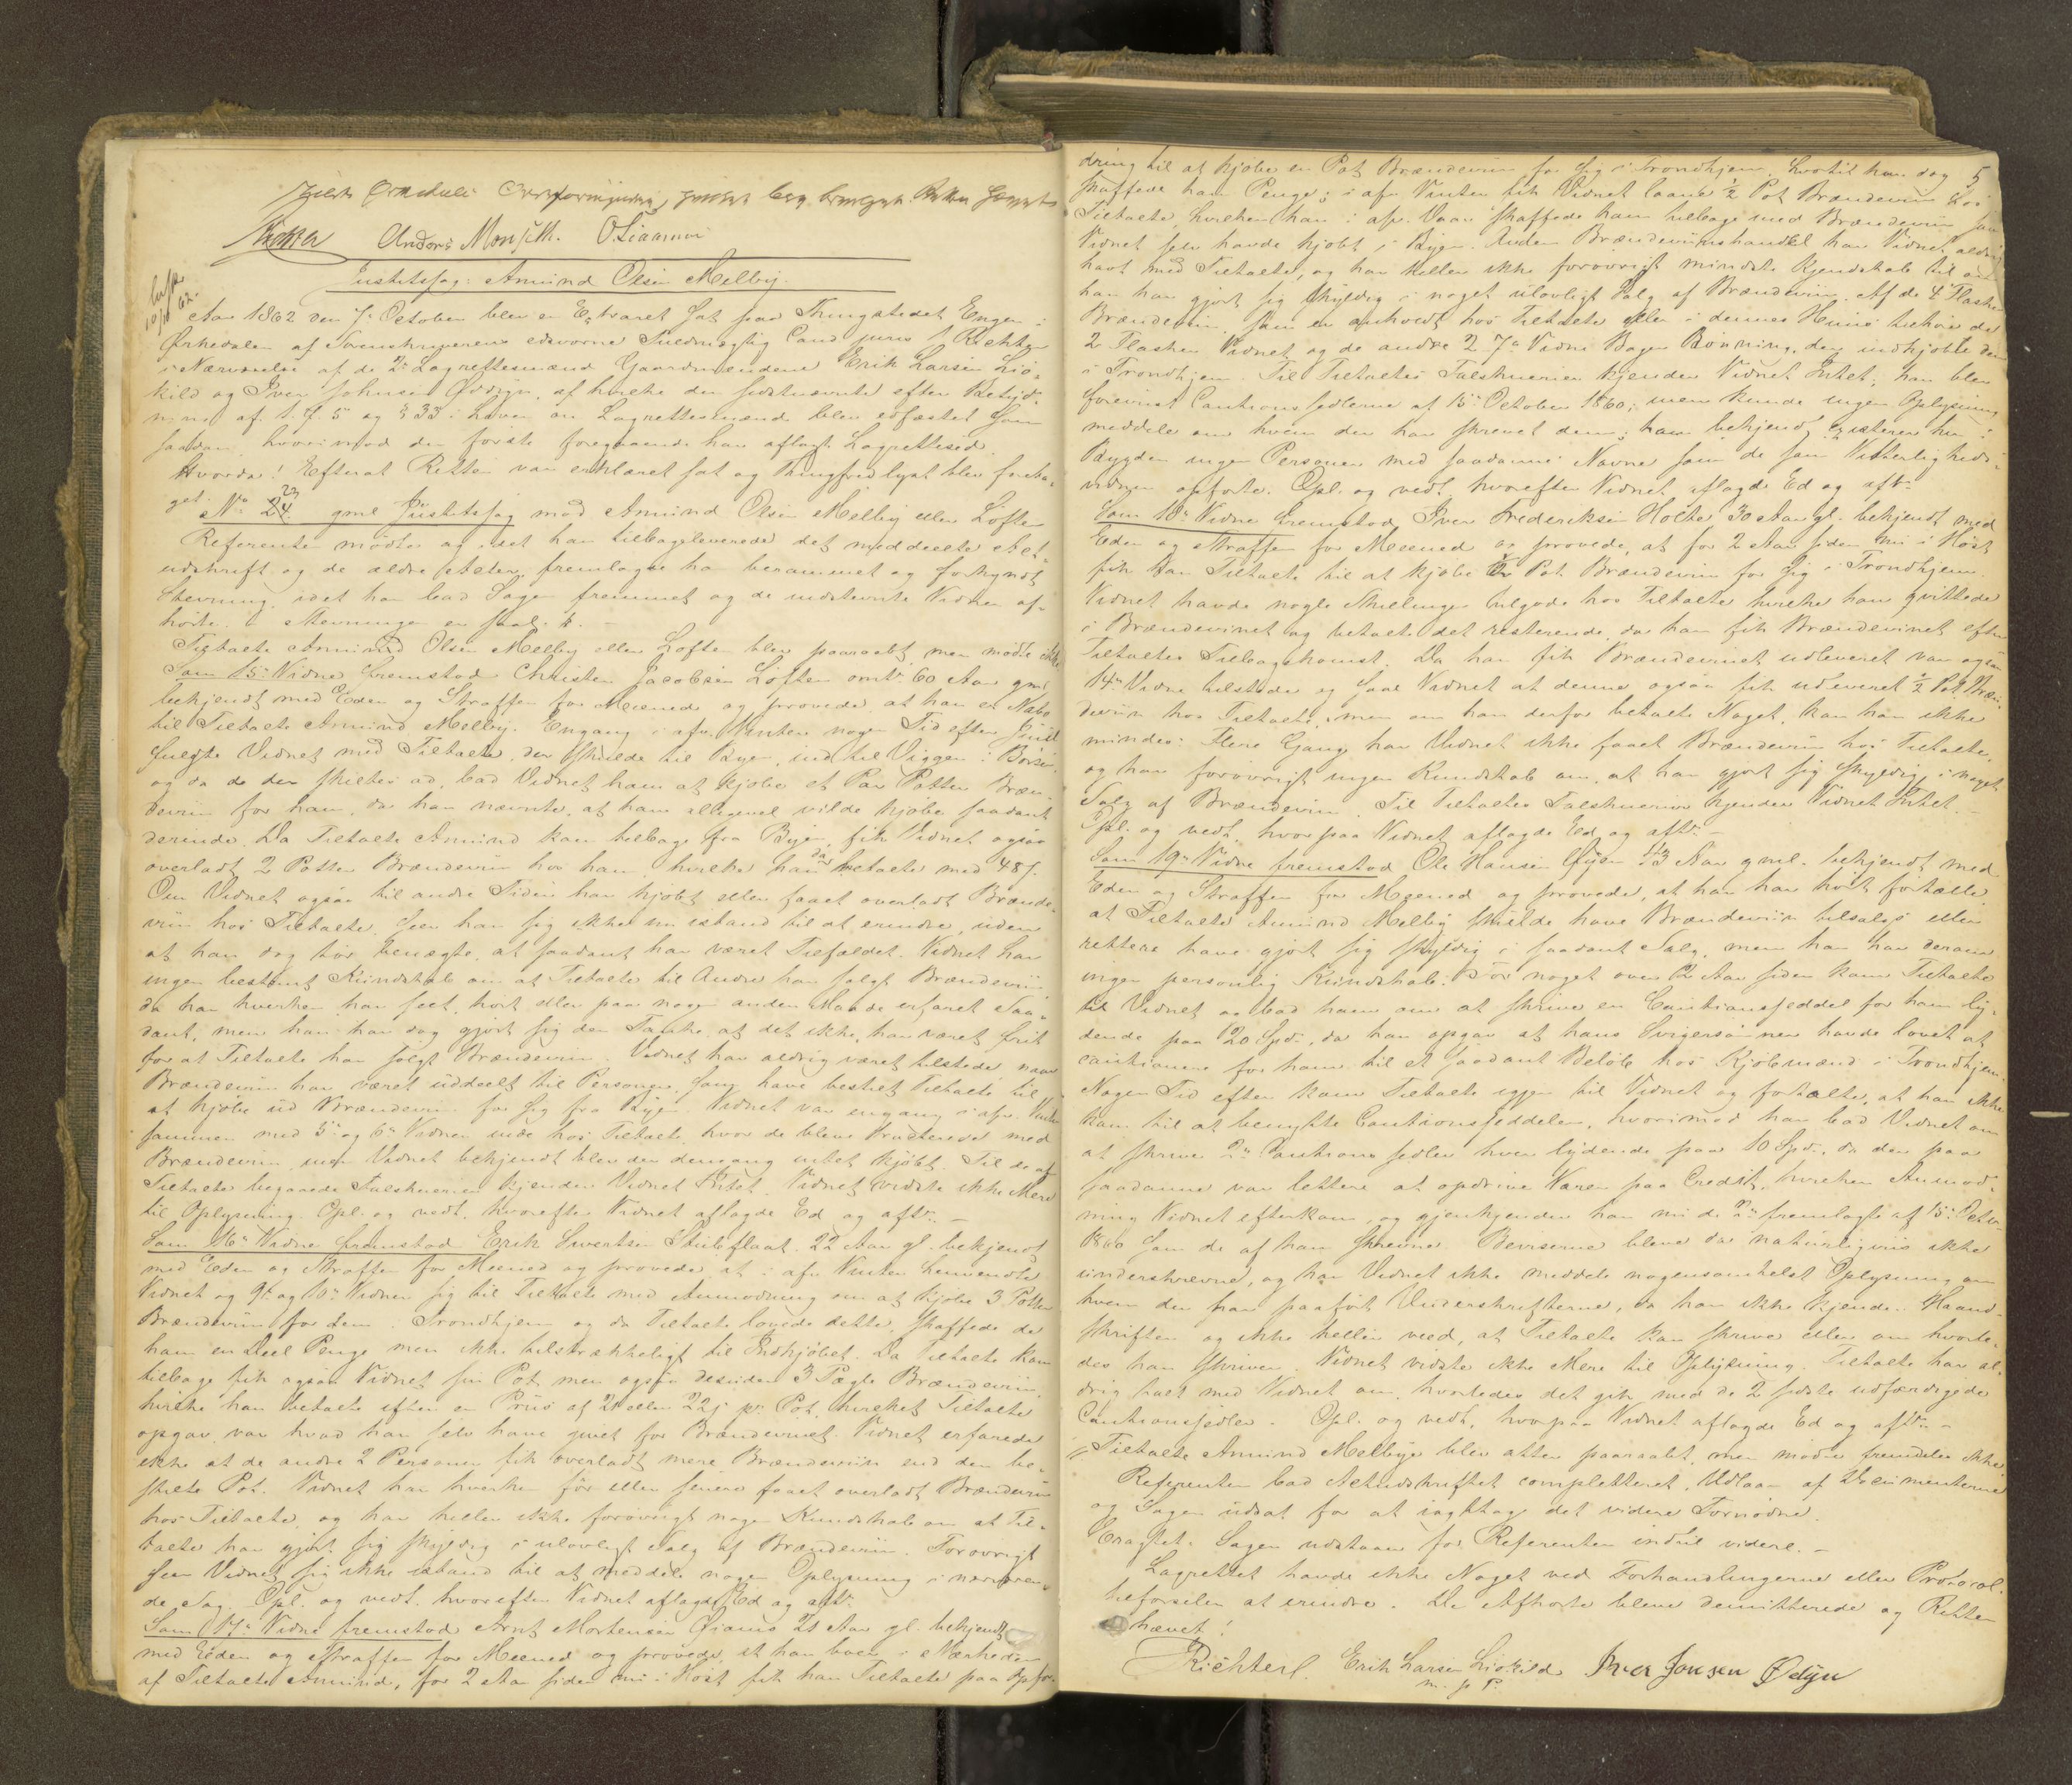 Richter Anders Monseth. O. Liaamoe
Justitssag: Amund Olsen Melbye.
Aar 1862 den 7de October blev en Extraret sat paa Thingstedet Engen i
Ørkedalen af Sorenskriverens edsvorne Fuldmægtig Cand juris Richter
i Nærværelse af de 2de Lagrettesmænd Gaardmændene Erik Larsen Lio-
kild og Iver Johnsen Ødsyn, af hvilke den sidstnævnte efter Betyd-
ning af L. § 5 og § 33 i Loven om Lagrettesmænd blev edfæstet som
saadan, hvorimod den første foregaaende har aflagt Lagrettesed.
Hvorda! Efterat Retten var erklæret sat og Thingfred lyst blev foreta-
get:
No 24. 23 gml Justitssag mod Amund Olsen Melby eller Løften
Referenten mødte og idet han tilbageleverede det meddeelte Act-
udskrift og de ældre Acter, fremlagde han berammet og forkyndt
Stevning, idet han bad Sagen fremmet og de indstevnte Vidner af-
hørte. Stevningen er saal. l.
Tiltalte Amund Olsen Melby eller Løften blev paaraabt, men mødte ikke
Som 15de Vidne fremstod Christen Jacobsen Løften omtr. 60 Aar gml
bekjendt med Eden og Straffen for Meened og provede, at han er Nabo
til Tiltalte Amund Melby. Engang i afv. Vinter nogen Tid efter Juul
fulgte Vidnet med Tiltalte, der skulde til Byen, ind til Viggen i Børsen,
og da de der skiltes ad, bad Vidnet ham at kjøbe et Par Potter Bræn-
deviin for ham, da han nævnte, at han alligevel vilde kjøbe saadant
derinde. Da Tiltalte Amund kom tilbage fra Byen, fik Vidnet ogsaa
overladt 2 Potter Brændeviin hos ham, hvilke han da betalte med 48 s.
Om Vidnet ogsaa til andre Tider har kjøbt eller faaet overladt Brænde-
viin hos Tiltalte, seer han sig ikke nu istand til at erindre, uden
at han dog tør benægte, at saadant har været Tilfældet. Vidnet har
ingen bestemt Kundskab om at Tiltalte til Andre har solgt Brændeviin,
da han hverken har seet, hørt eller paa nogen anden Maade erfaret Saa-
dant, men han har dog gjort sig den Tanke, at det ikke har været frit
for at Tiltalte har solgt Brændeviin. Vidnet har aldrig været tilstede naar
Brændeviin har været uddeelt til Personer, som have bestilt Tiltalte til
at kjøbe ud Brændeviin for sig fra Byen. Vidnet var engang i afv. Vinter
sammen med 5te og 6te Vidner inde hos Tiltalte, hvor de bleve tracterede med
Brændeviin, men Vidnet bekjendt blev der dengang intet kjøbt. Til de af
Tiltalte begaaede Falsknerier kjender Vidnet Intet. Vidnet vidste ikke Mere
til Oplysning. Opl. og vedt. hvorefter Vidnet aflagde Ed og aftr. –
Som 16de Vidne fremstod Erik Sivertsen Stubflaat 22 Aar gl. bekjendt
med Eden og Straffen for Meened og provede, at i afv. Vinter henvendte
Vidnet og 9de og 10de Vidner sig til Tiltalte med Anmodning om at kjøbe 3 Potter
Brændeviin for dem i Trondhjem og da Tiltalte lovede dette, skaffede de
ham en Deel Penge men ikke tilstrækkeligt til Indkjøbet. Da Tiltalte kom
tilbage fik ogsaa Vidnet sin Pot men ogsaa desuden 3 Pægle Brændeviin,
hvilke han betalte efter en Priis af 21 eller 22 s pr. Pot, hvilket Tiltalte
opgav var hvad han selv havde givet for Brændevinet. Vidnet erfarede
ikke at de andre 2 Personer fik overladt mere Brændeviin end den be-
stilte Pot. Vidnet har hverken før eller senere faaet overladt Brændeviin
hos Tiltalte og har heller ikke forøvrigt nogen Kundskab om at Til-
talte har gjort sig skyldig i ulovligt Salg af Brændeviin. Forøvrigt
seer Vidnet sig ikke istand til at meddele nogen Oplysning i nærværen-
de Sag. Opl. og vedt. hvorefter Vidnet aflagde Ed og aftr.
Som 17de Vidne fremstod Arnt Mortensen 21 Aar gl. bekjendt
med Eden og Straffen for Meened og provede, at han boer i Nærheden
af Tiltalte Amund, for 2 Aar siden nu i Høst fik han Tiltalte paa Opfor-
5
dring til at kjøbe en Pot Brændeviin for sig i Trondhjem, hvortil han dog
skaffede ham Penge; i afv. Vinter fik Vidnet laant ½ Pot Brændeviin hos
Tiltalte, hvilken han i afv. Vaar skaffede ham tilbage med Brændeviin som
Vidnet selv havde kjøbt i Byen. Anden Brændeviinshandel har Vidnet aldrig
havt med Tiltalte, og har heller ikke forøvrigt mindste Kjendskab til at
han har gjort sig skyldig i noget ulovligt Salg af Brændeviin. Af de 4 Flasker
Brændeviin, som er anholdt hos Tiltalte eller i dennes Huus tilhøre de
2 Flasker Vidnet og de andre 2 7de Vidne Bager Rønning, der indkjøbte dem
i Trondhjem. Til Tiltaltes Falsknerier kjender Vidnet Intet; han blev
foreviist Cautionssedlerne af 15de October 1860; men kunde ingen Oplysning
meddele om hvem der har skrevet dem; ham bekjendt existerer her i
Bygden ingen Personer med saadanne Navne som de som Vitterligheds-
vidner opførte. Opl. og vedt. hvorefter Vidnet aflagde Ed og aftr.
Som 18de Vidne fremstod Iver Frederiksen Holte 30 Aar gl. bekjendt med
Eden og Straffen for Meened og provede, at for 2 Aar siden nu i Høst
fik han Tiltalte til at kjøbe Pot Brændeviin for sig i Trondhjem.
Vidnet havde nogle Skillinger tilgode hos Tiltalte hvilke han qvittede
i Brændevinet og betalte det resterende, da han fik Brændevinet efter
Tiltaltes Tilbagekomst. Da han fik Brændevinet udleveret var ogsaa
14de Vidne tilstede og saae Vidnet at denne ogsaa fik udleveret ½ Pot Bræn-
deviin hos Tiltalte, men om han derfor betalte Noget, kan han ikke
mindes. Flere Gange har Vidnet ikke faaet Brændeviin hos Tiltalte,
og har forøvrigt ingen Kundskab om, at han gjort sig skyldig i noget
Salg af Brændeviin. Til Tiltaltes Falsknerier kjender Vidnet Intet. –
Opl. og vedt. hvorpaa Vidnet aflagde Ed og aftr. –
Som 19de Vidne fremstod Ole Hansen Aar gml. bekjendt med
Eden og Straffen for Meened og provede, at han har hørt fortælle,
at Tiltalte Amund Melby skulde have Brændeviin tilsalgs eller
rettere have gjort sig skyldig i saadant Salg, men han har derom
ingen personlig Kundskab. For noget over 2 Aar siden kom Tiltalte
til Vidnet og bad ham om at skrive en Cautionsseddel for ham ly-
dende paa 20 Spd., da han opgav at hans Svigersønner havde lovet at
cautionere for ham til et saadant Beløb hos Kjøbmænd i Trondhjem.
Nogen Tid efter kom Tiltalte igjen til Vidnet og fortalte, at han ikke
kom til at benytte Cautionsseddelen, hvorimod han bad Vidnet om
at skrive 2de Cautionssedler hver lydende paa 10 Spd., da der paa
saadanne var lettere at opdrive Varer paa Credit, hvilken Anmod-
ning Vidnet efterkom, og gjenkjender han nu de 2de fremlagte af 15de Octo-
1860 som de af ham skrevne. Beviserne bleve da naturligviis ikke
underskrevne, og kan Vidnet ikke meddele nogensomhelst Oplysning om
hvem der har paaført Underskrifterne, da han ikke kjender Haand-
skriften og ikke heller veed, at Tiltalte kan skrive eller om hvorle-
des han skriver. Vidnet vidste ikke Mere til Oplysning. Tiltalte har al-
drig talt med Vidnet om, hvorledes det gik med de 2 sidste udfærdigede
Cautionssedler. Opl. og vedt. hvorpaa Vidnet aflagde Ed og aftr. –
Tiltalte Amund Melbye blev atter paaraabt, men mødte fremdeles ikke.
Referenten bad Actudskriftet completteret, Udlaan af Documenterne
og Sagen udsat for at iagttage det videre Fornødne.
Eragtet: Sagen udstaaer for Referenten indtil videre. –
Lagrettet havde ikke Noget ved Forhandlingerne eller Protocol-
tilførselen at erindre. De Afhørte bleve demitterede og Retten
hævet!
Richter. Erik Larsen Liokild Iver Jonsen Ødyn
m. p. P.